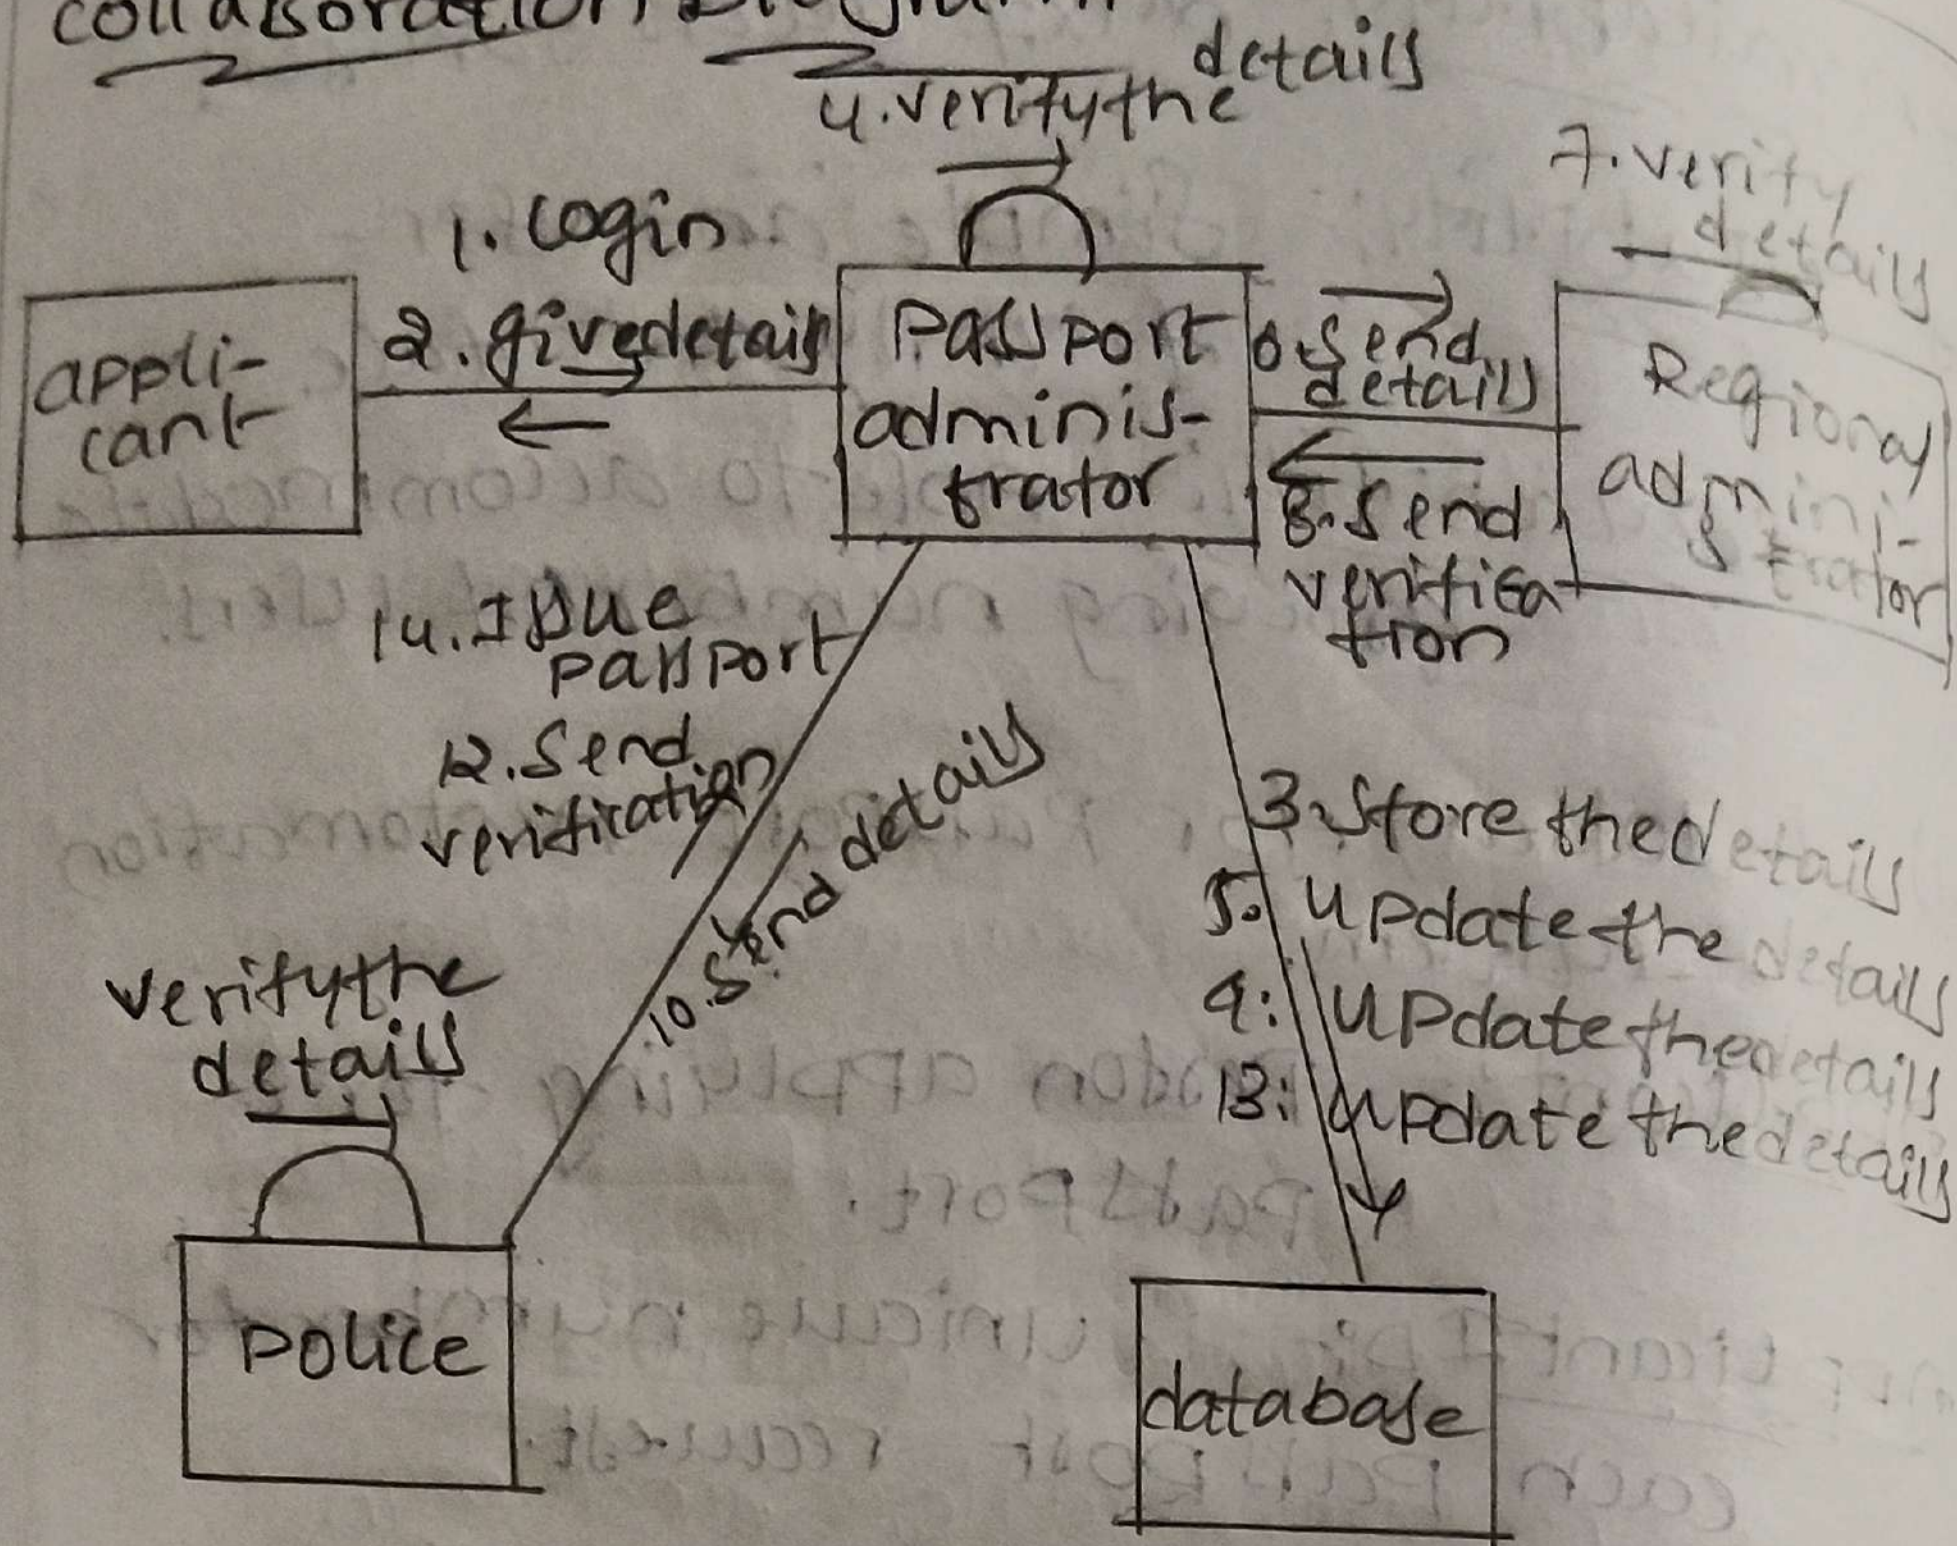 collaboration Diagram
4. verify the details
7. verify
details
1. Login
2. give details
appli-
cant
Passport
adminis-
trator
6. Send
details
8. Send
verifica
tion
Regional
admini-
strator
14. Issue
passport
12. Send
verification
10. Send details
3. Store the details
5. update the details
9: update the details
13: update the details
verify the
details
police
database